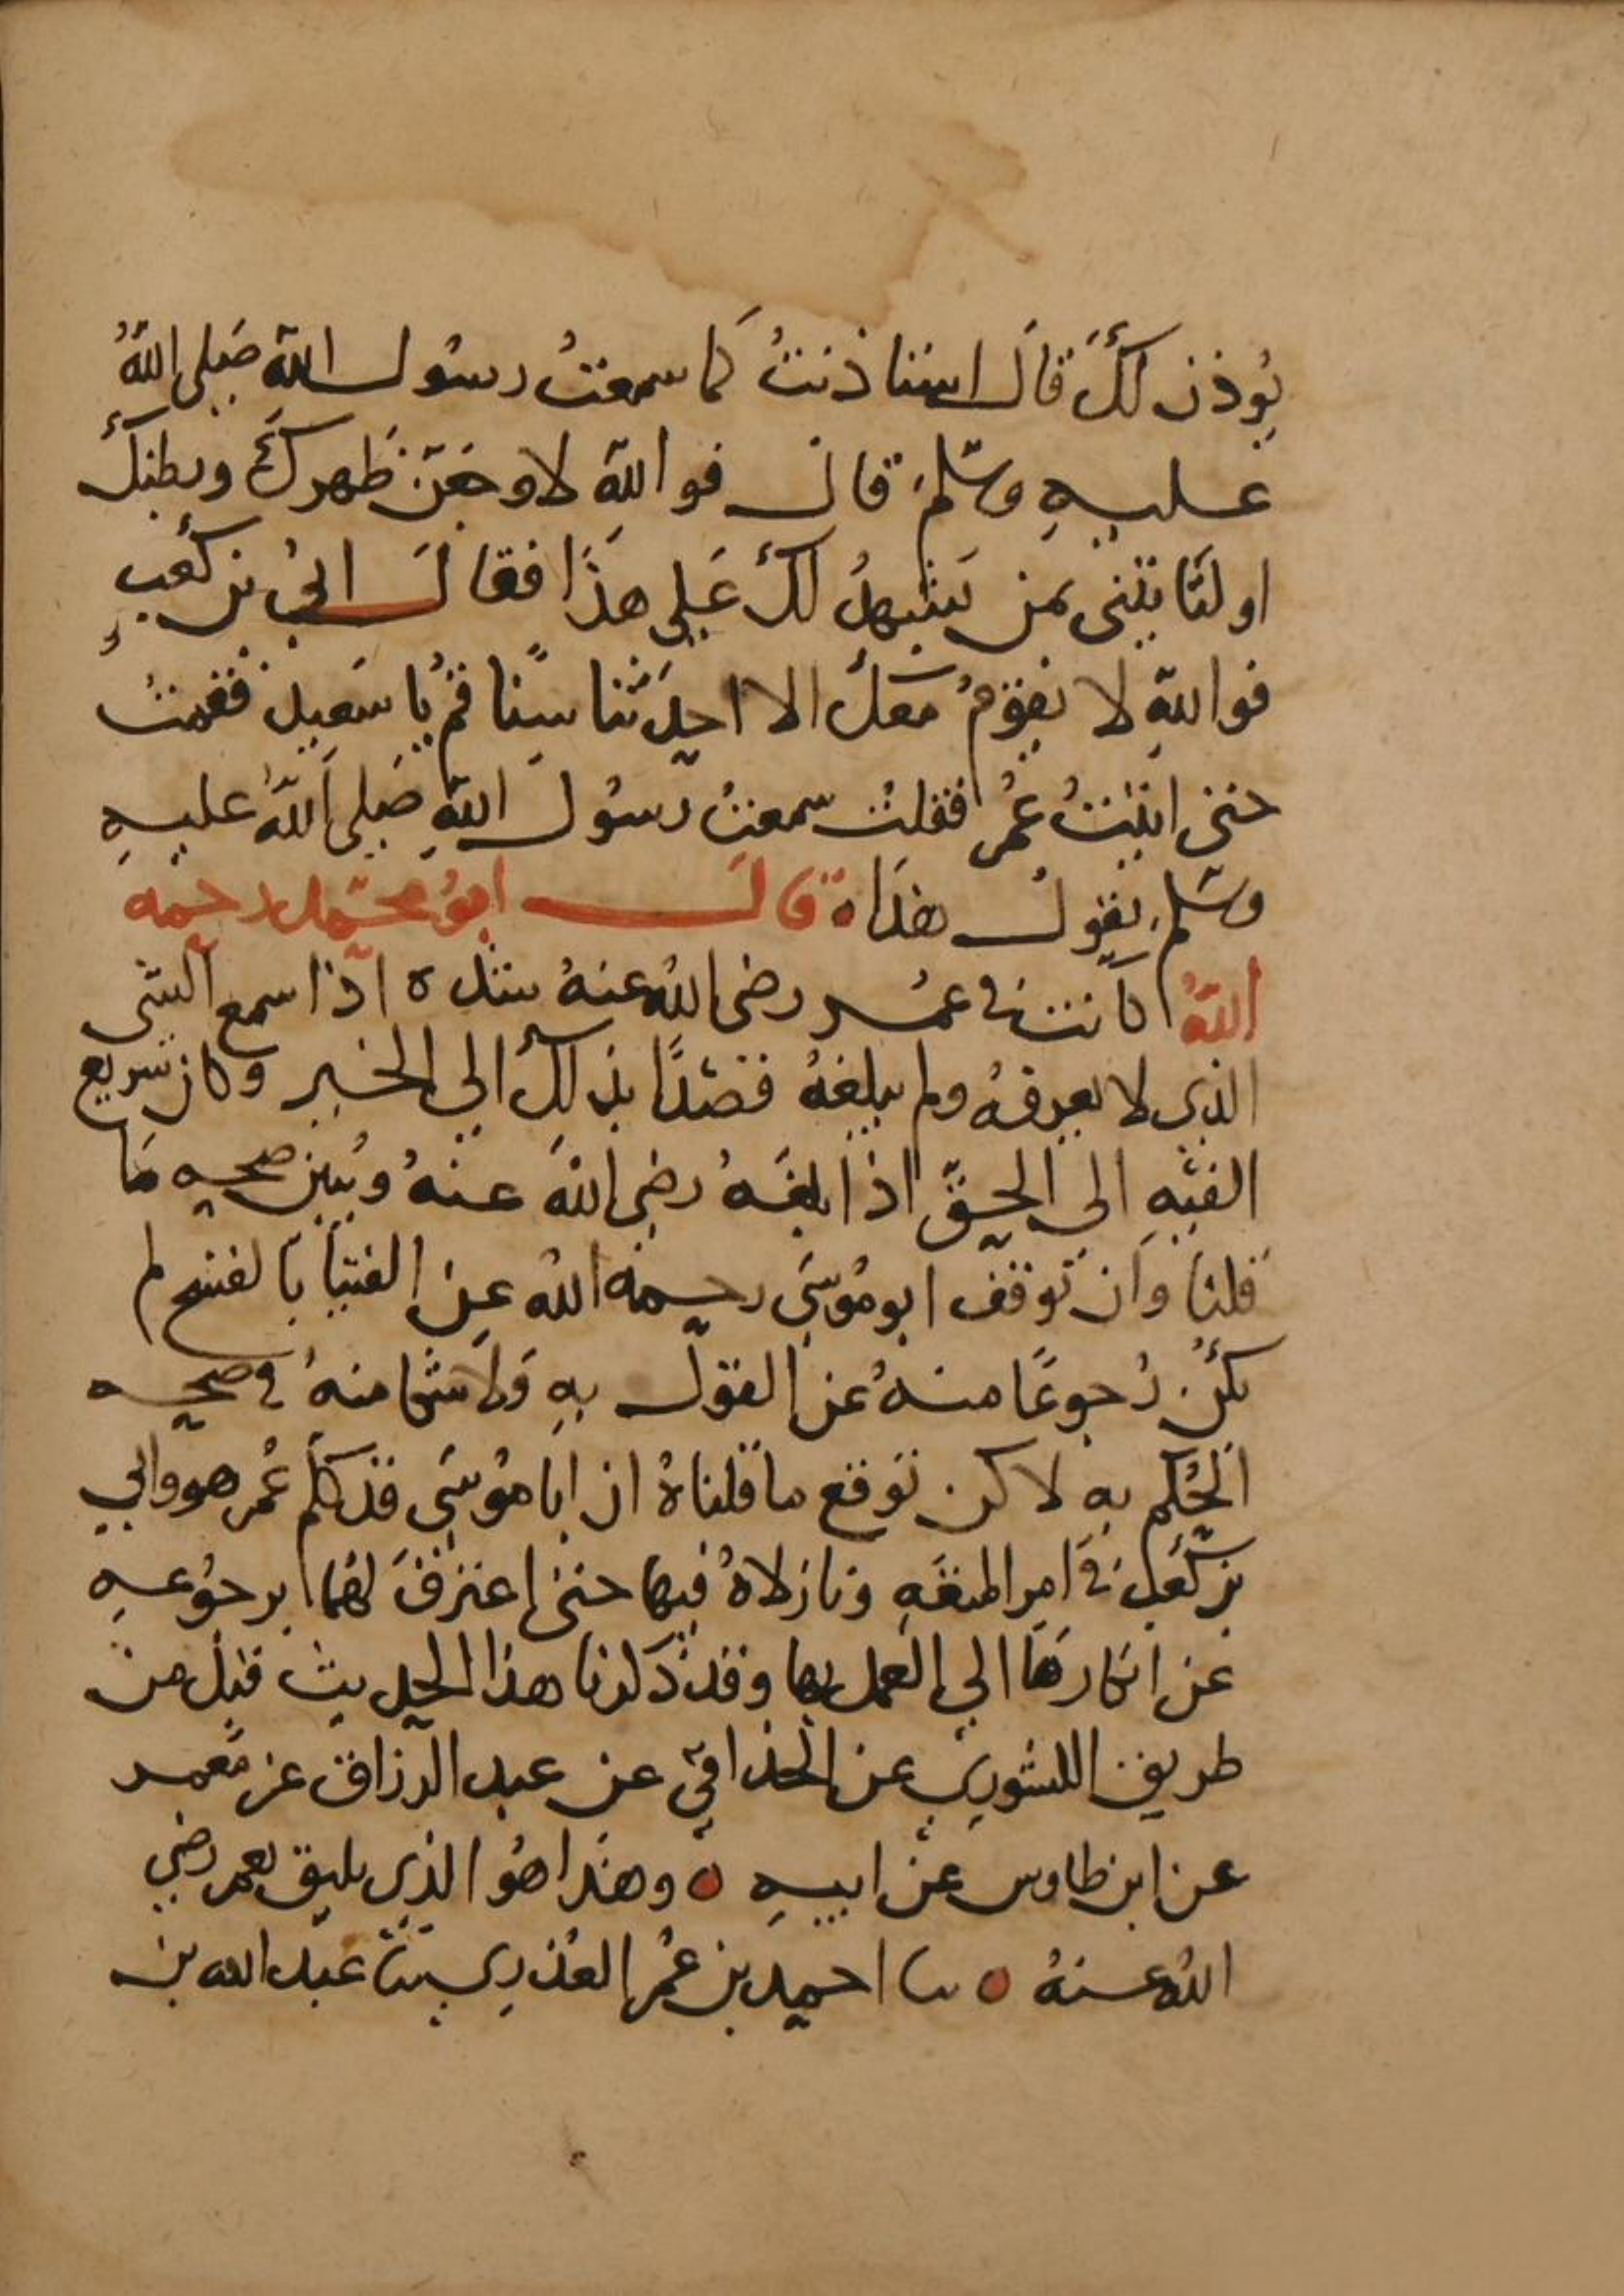 يُوذن لكَ قال استاذنتُ كما سمعتُ رسُول الله صَلى اللهُ
عليهِ وسَلم قال فوالله لاوجعَن ظهركَ وبطنك
او لتَاتيَني بمن يَشهدُ لكَ عَلى هذَا فقالَ ابيُ بن كعبٍ
فوالله لا يقوُمُ معكَ الا احدَثنا سِنًا قُم يَا سَعيد فقمتُ
حتى اتيتُ عُمر فقلتُ سمعتُ رسُول اللهِ صَلى اللهُ عليهِ
وسَلم يقول هذَا ه قالَ ابوُ محمّد رحمه
اللهُ كانت في عمُر رضى الله عنهُ شدة اذا سمع الشى
الذى لا يعرفهُ ولم يبلغهُ فصدًا بذلكَ الى الخبر وكان سَريع
الفيهِ الى الحقّ اذا بلغَهُ رضِى الله عنهُ وتبين صحه مَا
قلنَا وَان توقف ابو موُسَى رحمهُ الله عن الفتيَا بالفسح لم
يكُن رُجوعًا منهُ عن القوَل بهِ وَلا شكا منهُ في صحه
الحُكم به لاكن توقع ما قلناهُ ان ابا موُسَى قد كلم عُمر هو وابي
بن كَعب في امر المتعَهِ ونازلاهُ فيها حتى اعترفَ لهُما برجوُعهِ
عن انكارهَا الي العمل بها وقد ذكرنا هذا الحديث قبل من
طريق الدبرى عن الحذاقي عن عبد الرزاق عن معمر
عن ابن طاوس عن ابيهِ ه وهذَا هوُ الذى يليق بعمر رضي
اللهُ عنهُ ه نا احمد بن عُمر العذري نا عبد الله بن